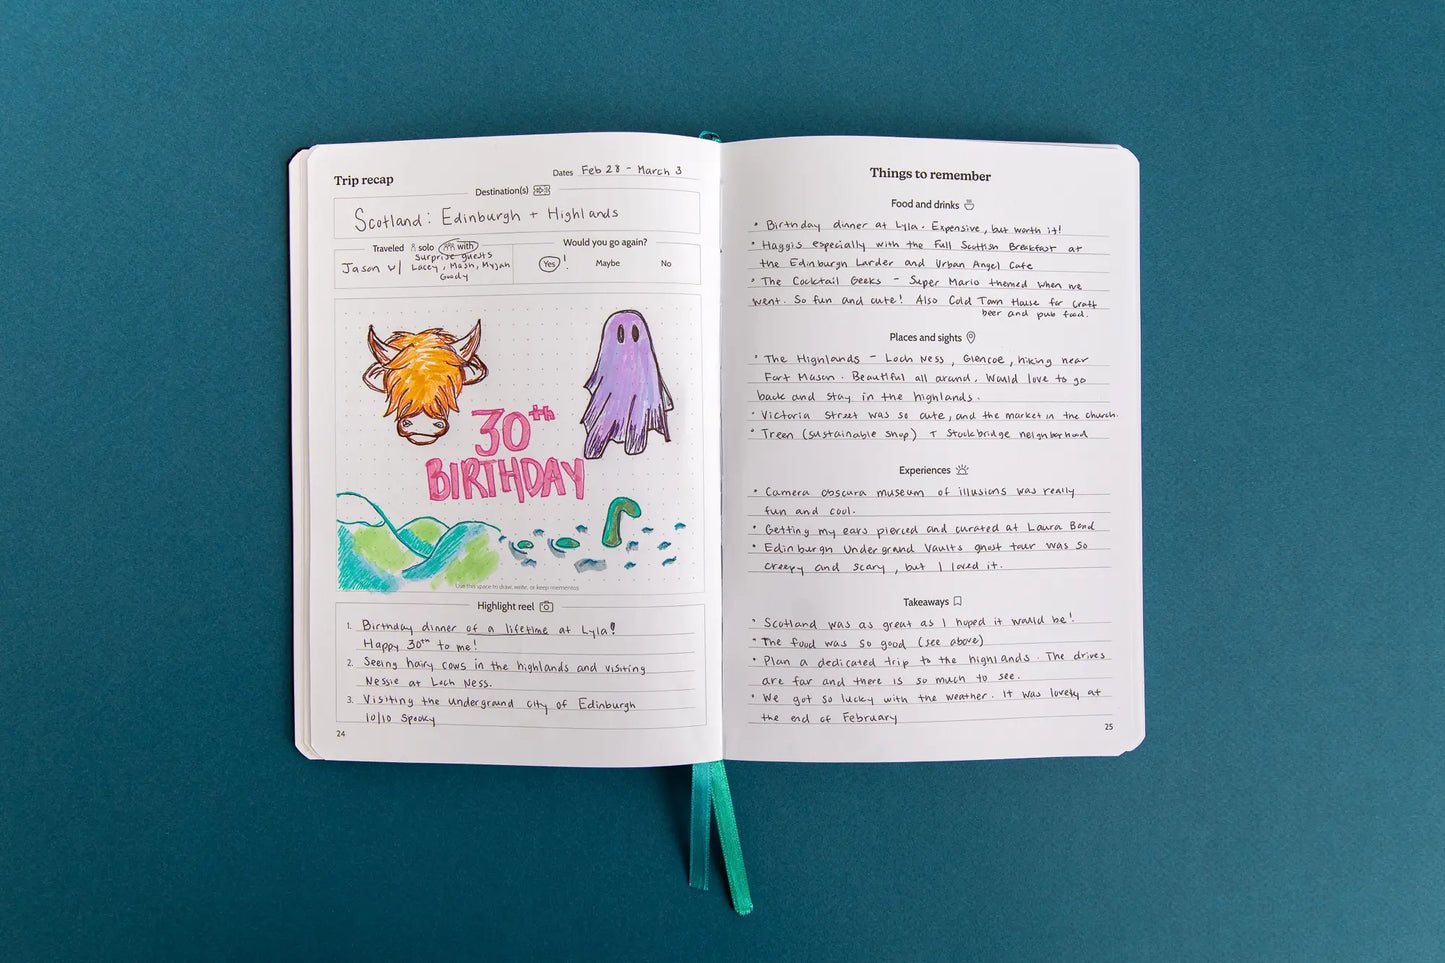 Trip recap
Dates Feb 28 - March 3
Destination(s)
Scotland: Edinburgh + Highlands
Traveled solo with
Jason w/ surprise guests
Lacey, Mash, Myjah
Goody
Would you go again?
Yes! Maybe No
30th
BIRTHDAY
Use this space to draw, write, or keep mementos
Highlight reel
1. Birthday dinner of a lifetime at Lyla!
Happy 30th to me!
2. Seeing hairy cows in the highlands and visiting
Nessie at Loch Ness.
3. Visiting the underground city of Edinburgh
10/10 Spooky
24
Things to remember
Food and drinks
• Birthday dinner at Lyla. Expensive, but worth it!
• Haggis especially with the Full Scottish Breakfast at
the Edinburgh Larder and Urban Angel Cafe
• The Cocktail Geeks - Super Mario themed when we
went. So fun and cute! Also Cold Town House for craft
beer and pub food.
Places and sights
• The Highlands - Loch Ness, Glencoe, hiking near
Fort Mason. Beautiful all around. Would love to go
back and stay in the highlands.
• Victoria Street was so cute, and the market in the church.
• Treen (sustainable shop) + Stockbridge neighborhood
Experiences
• Camera obscura museum of illusions was really
fun and cool.
• Getting my ears pierced and curated at Laura Bond
• Edinburgh Underground Vaults ghost tour was so
creepy and scary, but I loved it.
Takeaways
• Scotland was as great as I hoped it would be!
• The food was so good (see above)
• Plan a dedicated trip to the highlands. The drives
are far and there is so much to see.
• We got so lucky with the weather. It was lovely at
the end of February
25